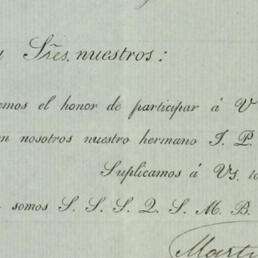 Sres. nuestros:
emos el honor de participar á V
en nosotros nuestro hermano J. P.
Suplicamos á Vs. to
somos S. S. S. Q. S. M. B.
Marti